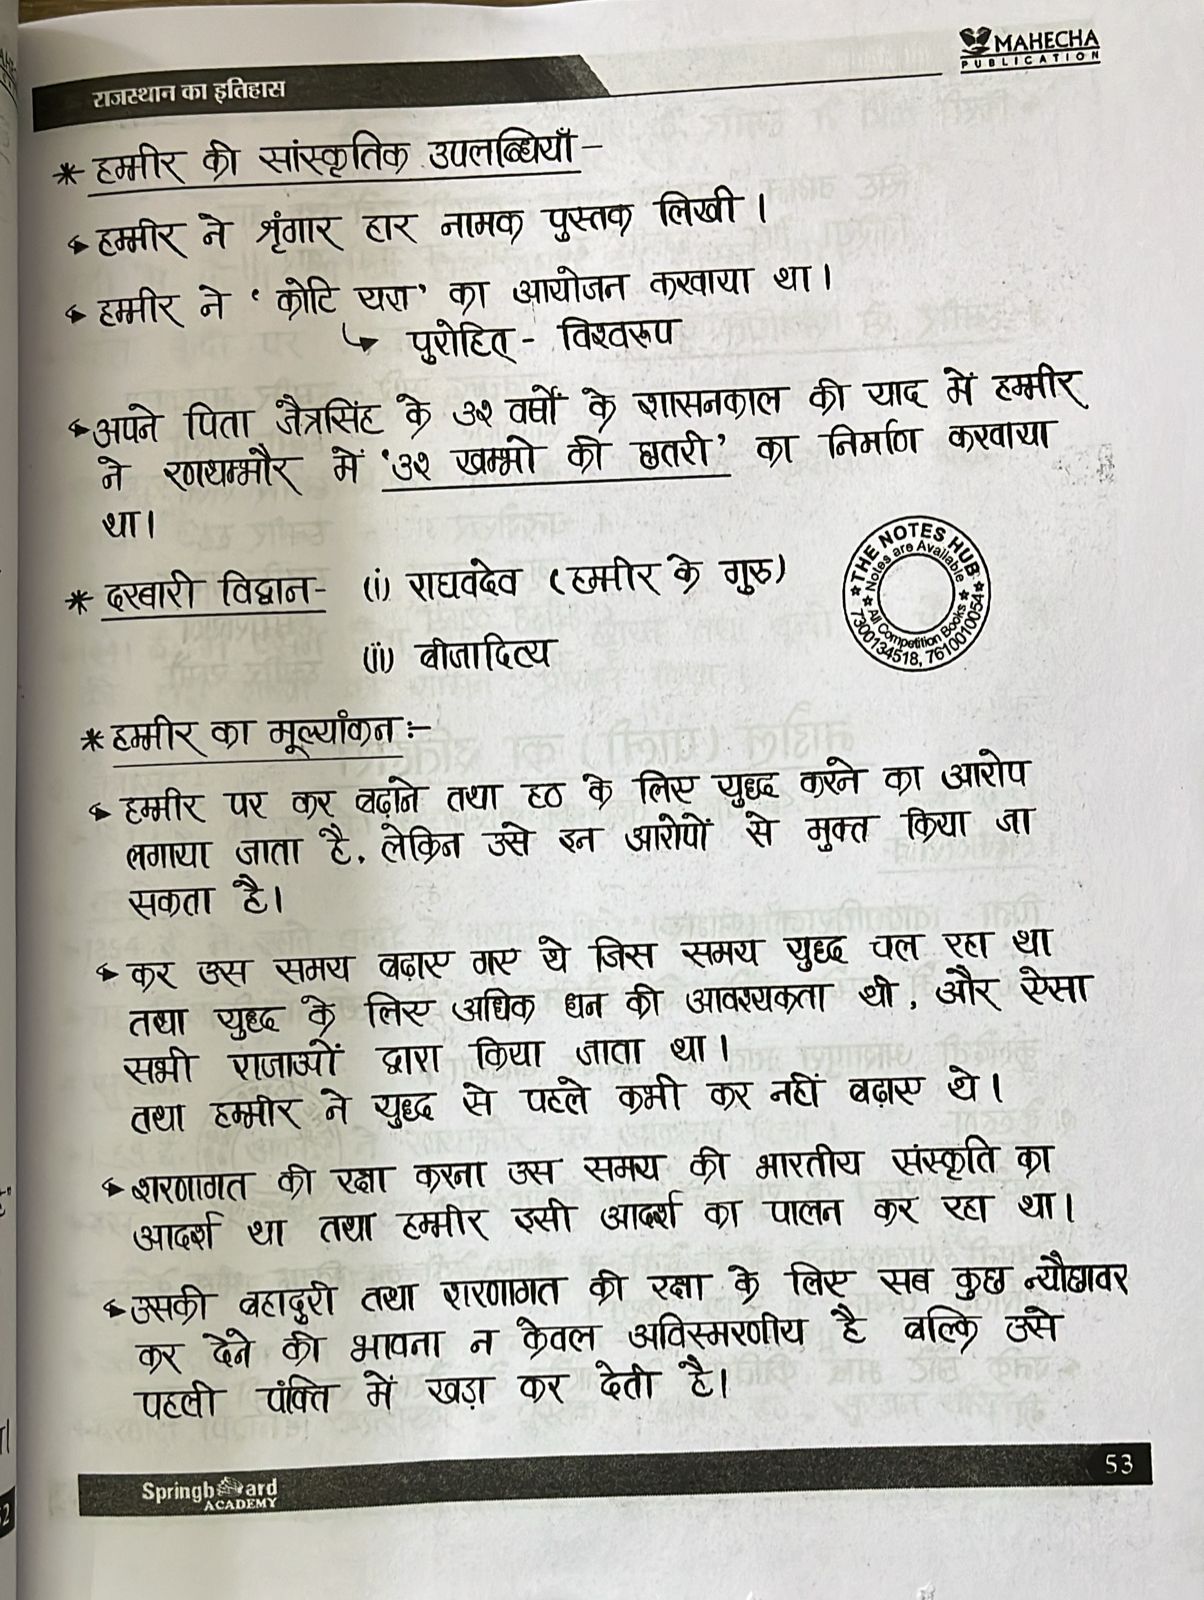 MAHECHA
PUBLICATION
राजस्थान का इतिहास
* हम्मीर की सांस्कृतिक उपलब्धियाँ -
हम्मीर ने श्रृंगार हार नामक पुस्तक लिखी।
हम्मीर ने 'कोटि यज्ञ' का आयोजन करवाया था।
↳ पुरोहित - विश्वरूप
अपने पिता जैत्रसिंह के 32 वर्षों के शासनकाल की याद में हम्मीर
ने रणथम्भौर में '32 खम्भो की छतरी' का निर्माण करवाया
था।
* दरबारी विद्वान - (i) राघवदेव (हम्मीर के गुरु)
(ii) बीजादित्य
THE NOTES HUB
Notes are Available
All Competition Books
7300134518, 7610010054
* हम्मीर का मूल्यांकन :-
हम्मीर पर कर बढ़ाने तथा हठ के लिए युद्ध करने का आरोप
लगाया जाता है, लेकिन उसे इन आरोपों से मुक्त किया जा
सकता है।
कर उस समय बढ़ाए गए थे जिस समय युद्ध चल रहा था
तथा युद्ध के लिए अधिक धन की आवश्यकता थी, और ऐसा
सभी राजाओं द्वारा किया जाता था।
तथा हम्मीर ने युद्ध से पहले कभी कर नहीं बढ़ाए थे।
शरणागत की रक्षा करना उस समय की भारतीय संस्कृति का
आदर्श था तथा हम्मीर इसी आदर्श का पालन कर रहा था।
उसकी बहादुरी तथा शरणागत की रक्षा के लिए सब कुछ न्यौछावर
कर देने की भावना न केवल अविस्मरणीय है बल्कि उसे
पहली पंक्ति में खड़ा कर देती है।
Springboard
ACADEMY
53